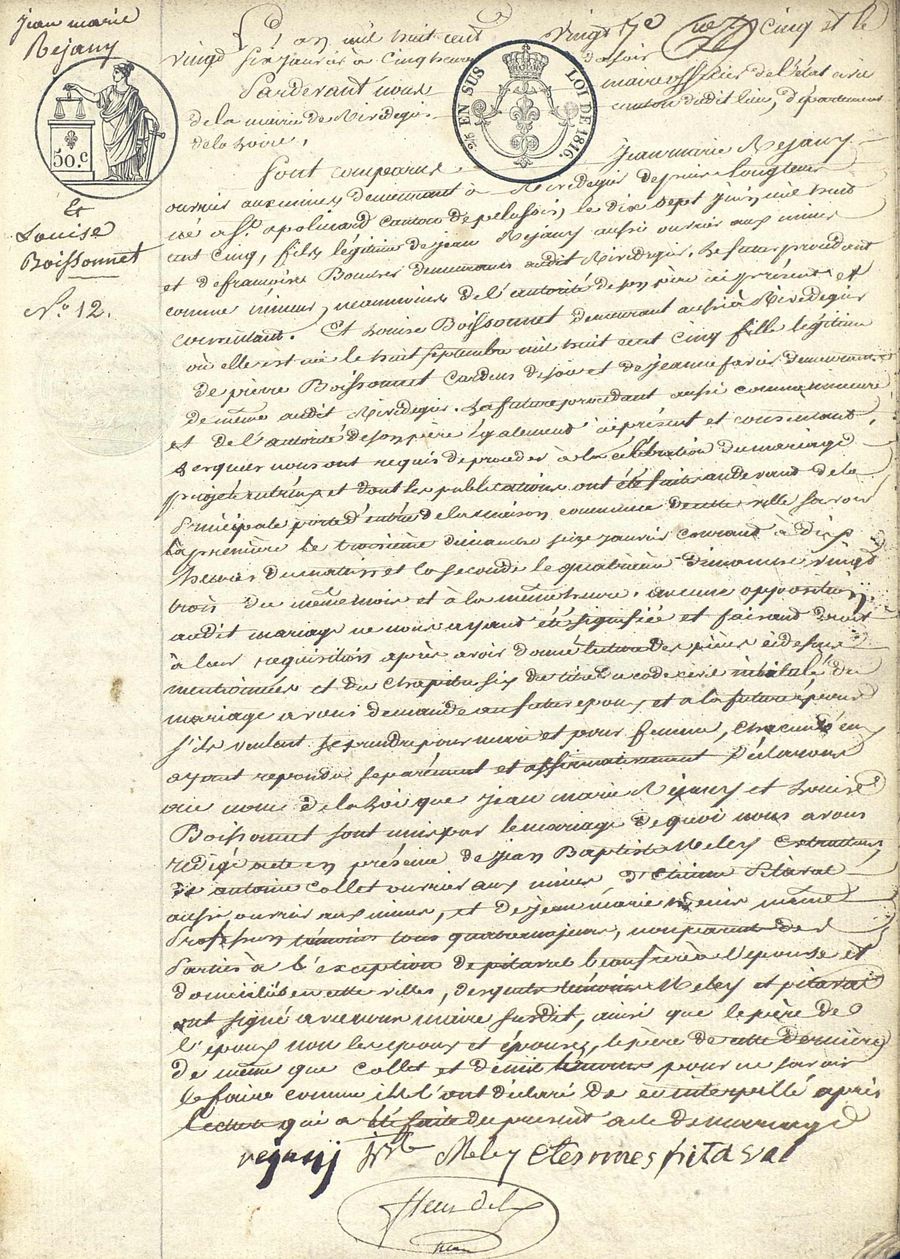 Jean marie
Rejany
&
Louise
Boissonnet
N.o 12.
50.c
2/5 EN SUS LOI DE 1816.
L'an mil huit cent vingt cinq et le
vingt six janvier à cinq heures du soir
Pardevant nous maire officier de l'état civil
de la mairie de Rivedegier canton dudit lieu, département
de la Loire,
Sont comparus Jean marie Rejany
ouvrier aux mines demeurant à Rivedegier depuis longtems
né à St apolinard canton de pelussin, le dix sept juin mil huit
cent cinq, fils légitime de jean Rejany aussi ouvrier aux mines
et de françoise demeurants audit Rivedegier. Le futur procédant
comme mineur, néanmoins de l'autorité de son père ici présent et
consentant. Et Louise Boissonnet demeurant aussi à Rivedegier
où elle est née le huit septembre mil huit cent cinq fille légitime
de pierre Boissonnet et de jeanne demeurants
de même audit Rivedegier. La future procédant aussi comme mineure
et de l'autorité de son père également ici présent et consentant
Lesquels nous ont requis de procéder à la célébration du mariage
projeté entr'eux et dont les publications ont été faites au devant de la
principale porte d'entrée de la maison commune de cette ville savoir
la première le troisième dimanche seize janvier courant à dix
heures du matin et la seconde le quatrième dimanche vingt
trois du même mois et à la même heure. aucune opposition
audit mariage ne nous ayant été signifiée et faisant droit
à leur requisition après avoir donné lecture des pièces cidessus
mentionnées et du chapitre six du titre du code civil intitulé du
mariage avons demandé au futur epoux et à la future épouse
s'ils veulent se prendre pour mari et pour femme, chacun d'eux
ayant repondu séparément et affirmativement Déclarons
au nom de la loi que jean marie Rejany et Louise
Boissonnet sont unis par le mariage de quoi nous avons
redigé acte en présence de jean Baptiste Meley
de antoine Collet ouvrier aux mines, d'Etienne Pitaval
aussi ouvrier aux mines, et de jean marie même
profession témoins tous quatre majeurs, non parents des
parties à l'exception de pitaval beaufrère à l'epouse et
domiciliés en cette ville, desquels témoins Meley et pitaval
ont signé avec nous maire susdit, ainsi que le père de
l'époux non les epoux et épouse, le père de cette dernière
de même que Collet et témoins pour ne savoir
le faire comme ils l'ont déclaré de ce interpellé après
lecture qui a été faite du présent acte de mariage
rejanj Meley etiennes pitaval